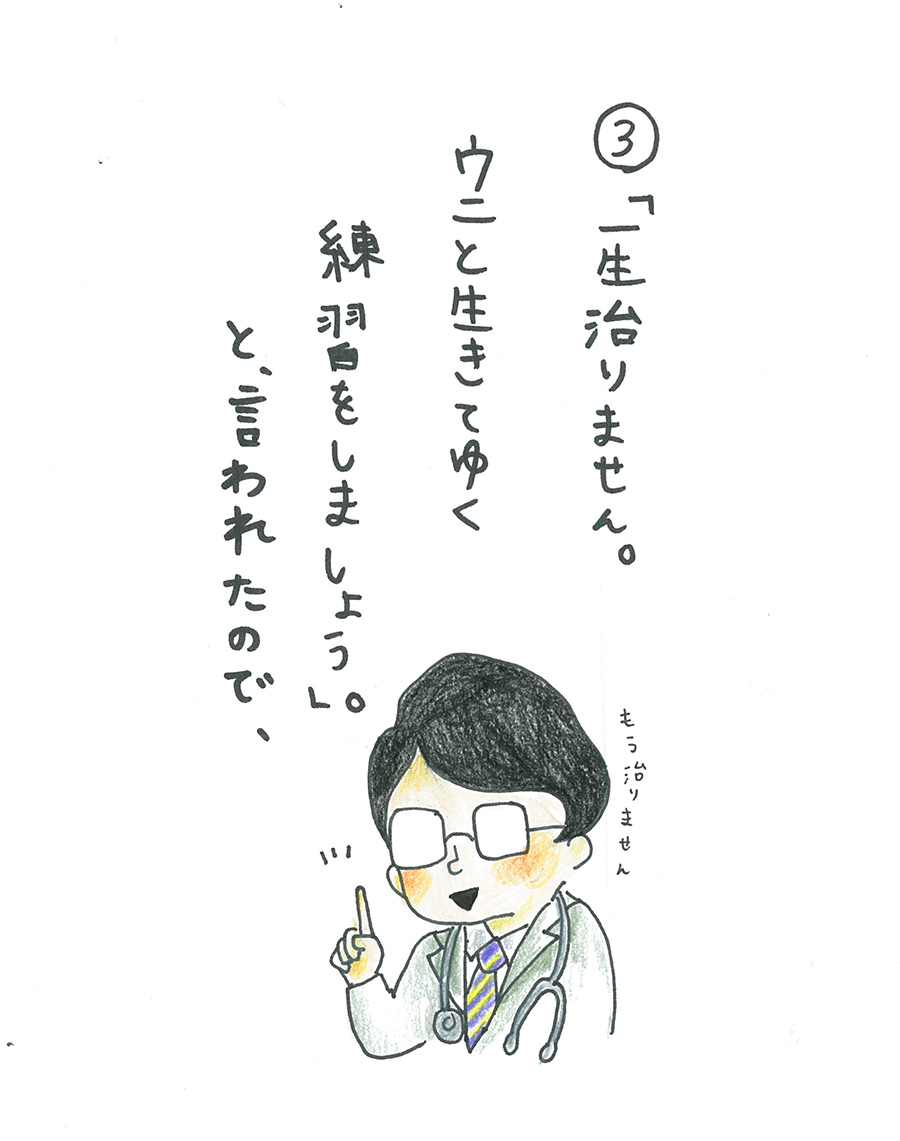 ③「一生治りません。
ウニと生きてゆく
練習をしましょう」。
と、言われたので、
もう治りません